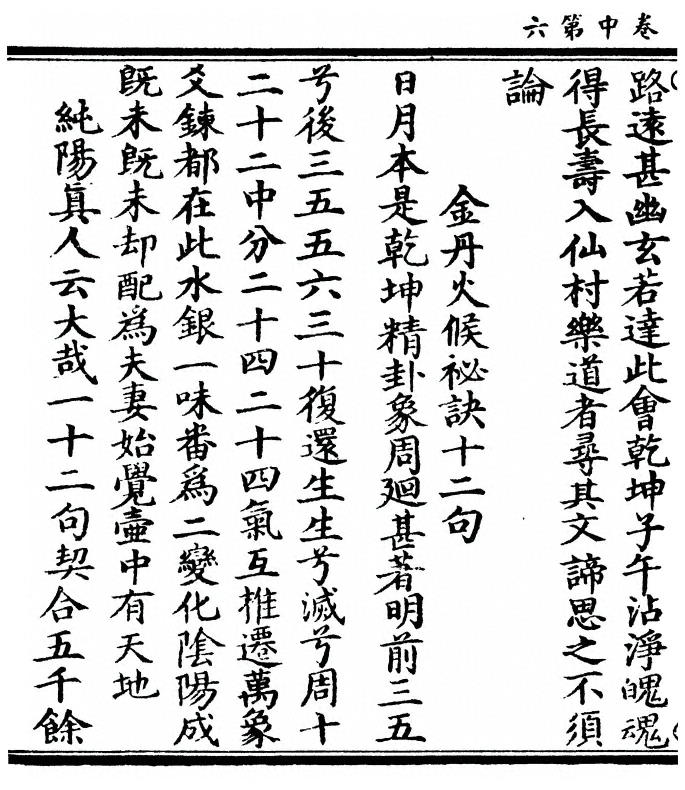 卷中第六
路遠甚幽玄若達此會乾坤子午沾淨魄魂
得長壽入仙村樂道者尋其文諦思之不須
論
金丹火候祕訣十二句
日月本是乾坤精卦象周廻甚著明前三五
兮後三五五六三十復還生生兮滅兮周十
二十二中分二十四二十四氣互推遷萬象
爻鍊都在此水銀一味番爲二變化陰陽成
旣未旣未却配爲夫妻始覺壷中有天地
純陽眞人云大哉一十二句契合五千餘